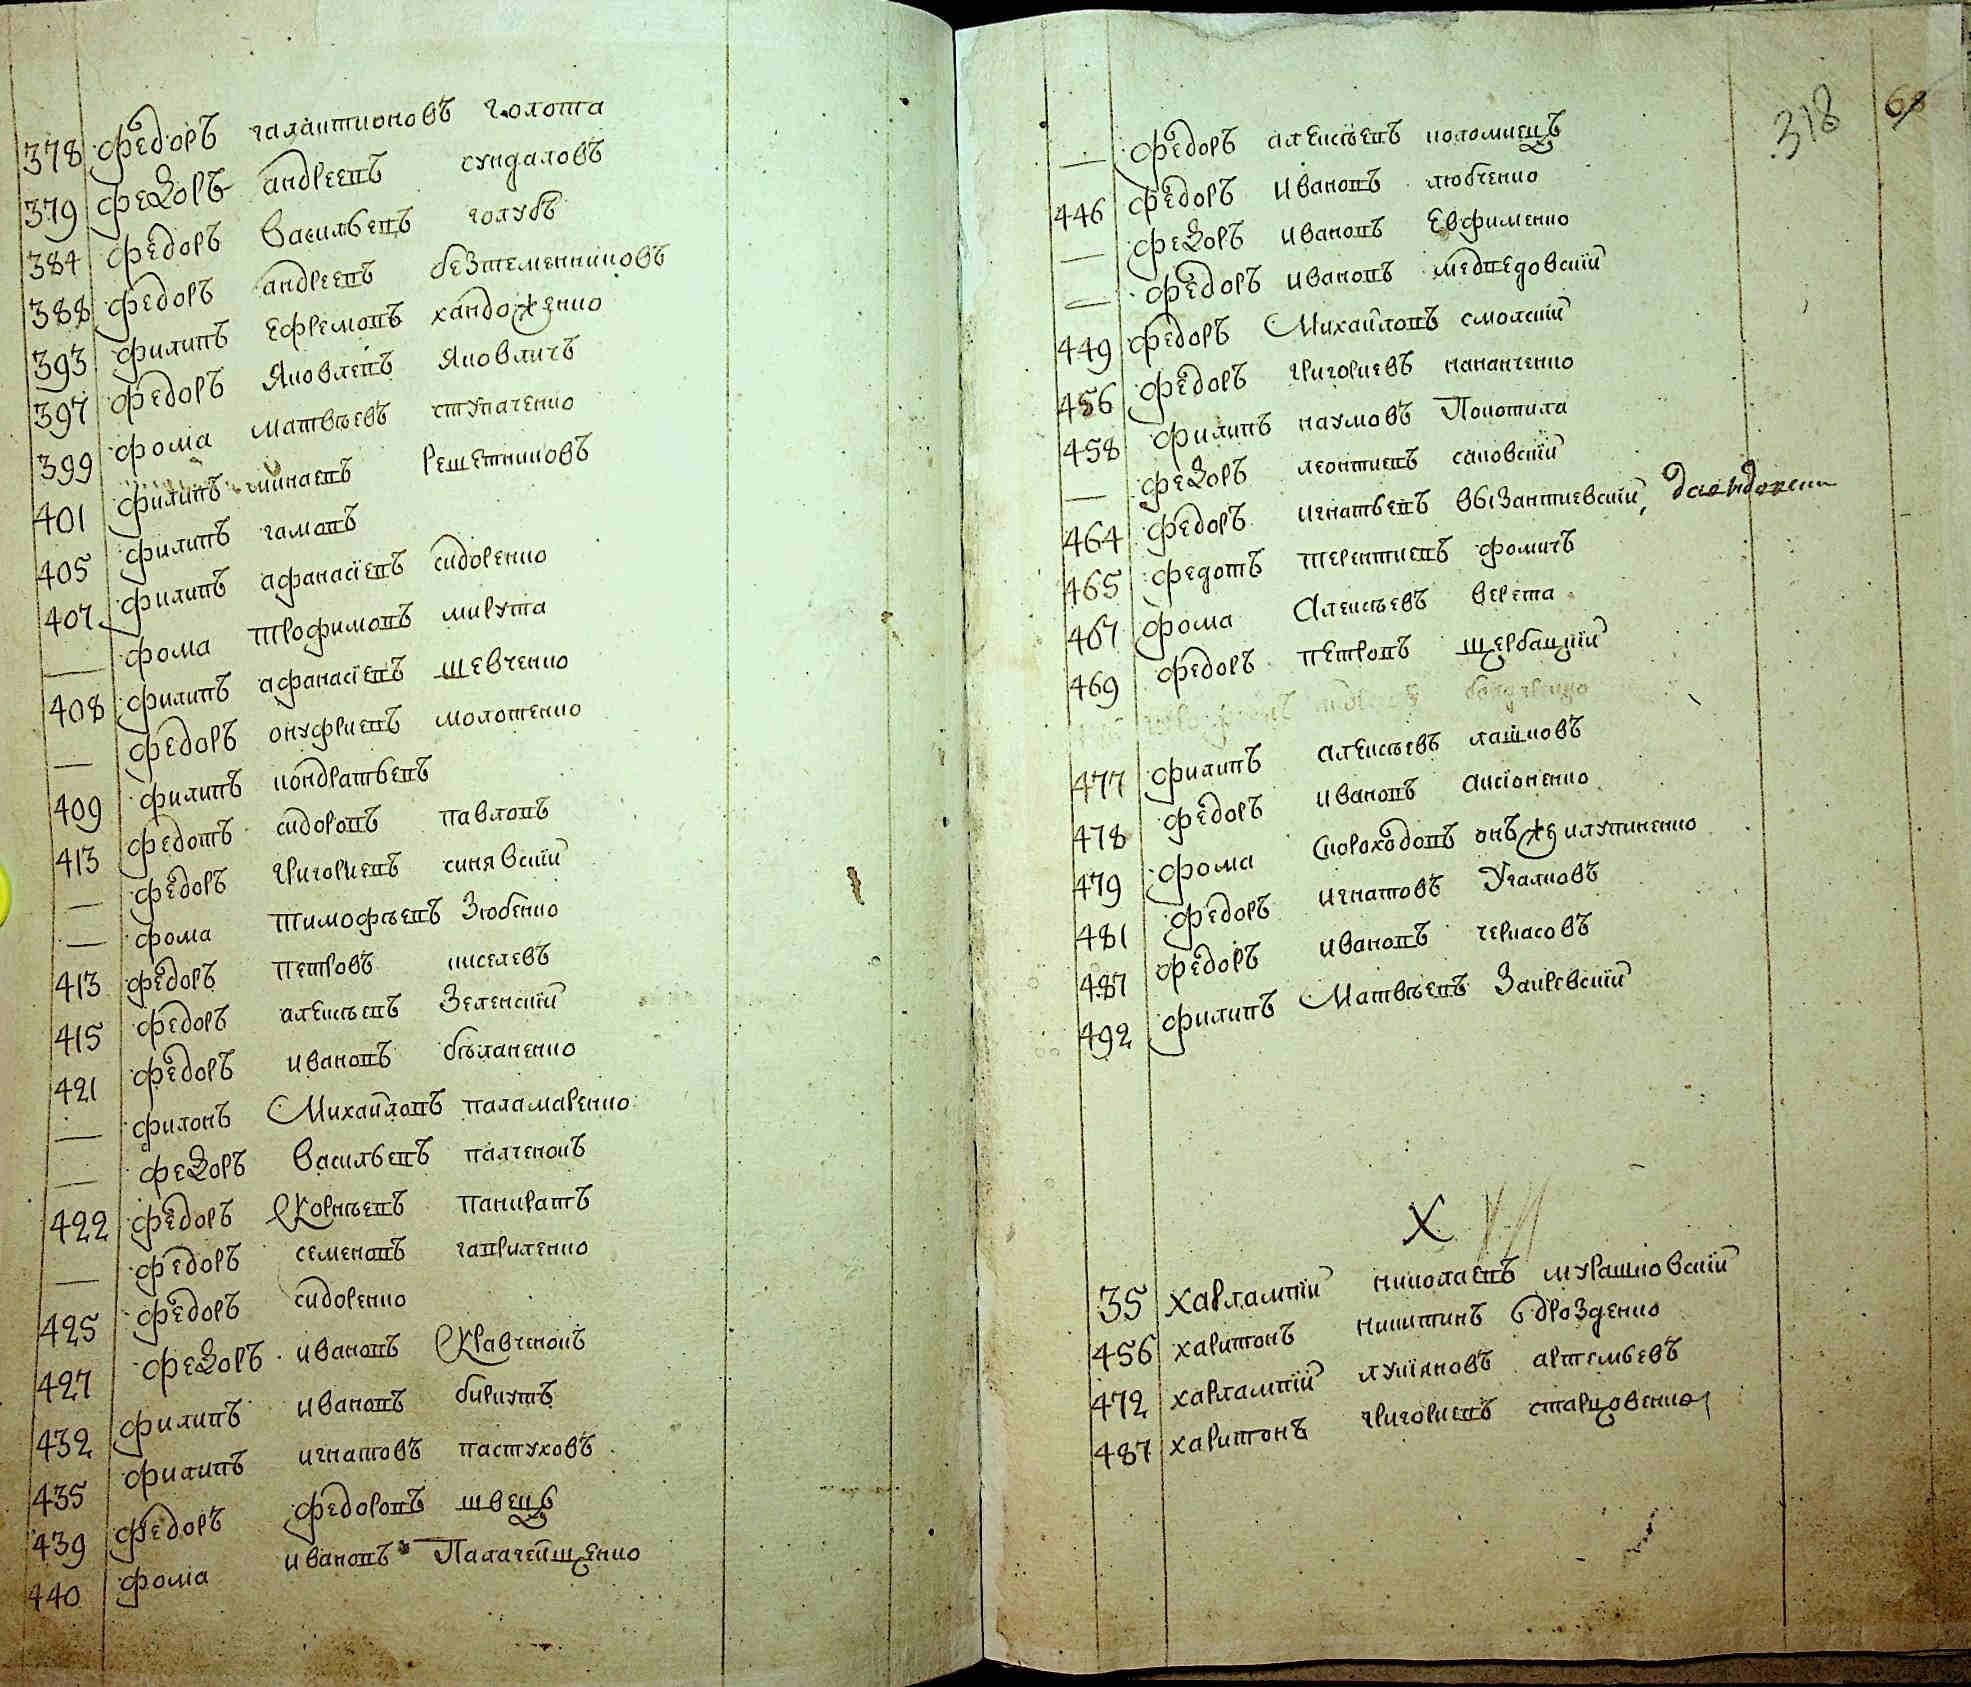 378 Федоръ галактионовъ голота
379 Федоръ андреевъ сундаловъ
384 Федоръ Васильевъ голубъ
388 Федоръ андреевъ безтеменниковъ
393 Филипъ Ефремовъ хандоженко
397 Федоръ Яковлевъ Яковличъ
399 Фома матвѣевъ ступаченко
401 Филипъ минаевъ Решетниковъ
405 Филипъ гамовъ
407 Филипъ афанасіевъ сидоренко
— Фома трофимовъ микута
408 Филипъ афанасіевъ шевченко
— Федоръ онуфриевъ молотенко
409 Филипъ кондратьевъ
413 Федотъ сидоровъ павловъ
— Федоръ григориевъ синявский
— Фома тимофѣевъ Зюбенко
413 Федоръ Петровъ киселевъ
415 Федоръ алексѣевъ Зеленский
421 Федоръ ивановъ бѣланенко
— Филонъ Михайловъ паламаренко
— Федоръ Васильевъ палченокъ
422 Федоръ Корнѣевъ панкратъ
— Федоръ семеновъ гавриленко
425 Федоръ сидоренко
427 Федоръ ивановъ Кравченокъ
432 Филипъ ивановъ бирутъ
435 Филипъ игнатовъ пастуховъ
439 Федоръ Федоровъ швецъ
440 Фома ивановъ Палагейщенко
318
— Федоръ алексѣевъ коломиецъ
446 Федоръ Ивановъ любченко
— Федоръ ивановъ Евфименко
— Федоръ ивановъ медведовский
449 Федоръ Михайловъ смолский
456 Федоръ григориевъ капанченко
458 Филипъ наумовъ Покотила
— Федоръ леонтиевъ саковский
464 Федоръ игнатьевъ Византиевский,
465 Федотъ терентиевъ фомичъ
467 Фома Алексѣевъ верета
469 Федоръ петровъ щербацкий
477 Филипъ алексѣевъ лашковъ
478 Федоръ ивановъ аксіоненко
479 Фома Скороходовъ онъ же илупиненко
481 Федоръ игнатовъ Угалковъ
487 Федоръ ивановъ черкасовъ
492 Филипъ Матвѣевъ Закревский
Х
35 Харлампий николаевъ мурашковский
456 Харитонъ никитинъ дрозденко
472 Харлампий лукіяновъ артемьевъ
487 Харитонъ григориевъ старцовенко